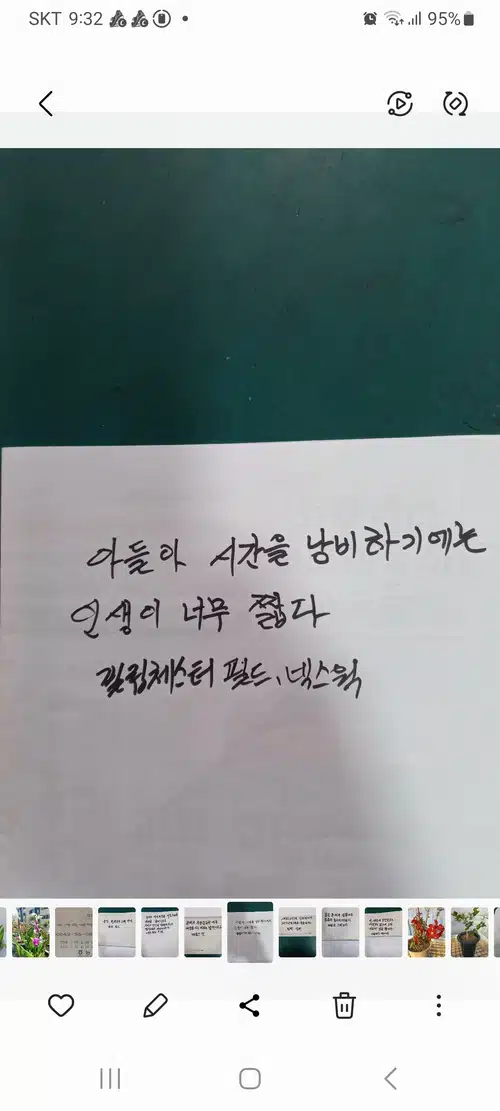 SKT 9:32
95%
아들아 시간을 낭비하기에는
인생이 너무 짧다
필립체스터 필드, 넥스웍